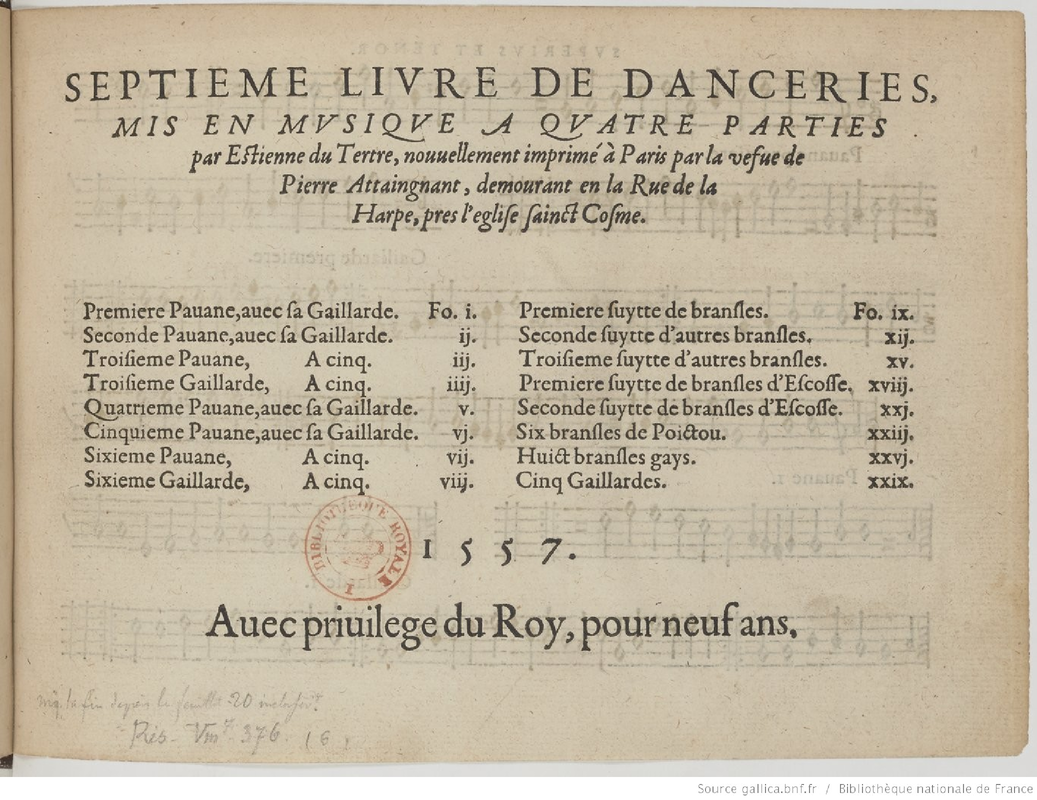 SEPTIEME LIVRE DE DANCERIES,
MIS EN MVSIQVE A QVATRE PARTIES
par Eſtienne du Tertre, nouuellement imprimé à Paris par la vefue de
Pierre Attaingnant, demourant en la Rue de la
Harpe, pres l'egliſe ſainct Coſme.
Premiere Pauane, auec ſa Gaillarde. Fo. i.
Seconde Pauane, auec ſa Gaillarde. ij.
Troiſieme Pauane, A cinq. iij.
Troiſieme Gaillarde, A cinq. iiij.
Quatrieme Pauane, auec ſa Gaillarde. v.
Cinquieme Pauane, auec ſa Gaillarde. vj.
Sixieme Pauane, A cinq. vij.
Sixieme Gaillarde, A cinq. viij.
Premiere ſuytte de branſles. Fo. ix.
Seconde ſuytte d'autres branſles. xij.
Troiſieme ſuytte d'autres branſles. xv.
Premiere ſuytte de branſles d'Eſcoſſe. xviij.
Seconde ſuytte de branſles d'Eſcoſſe. xxj.
Six branſles de Poictou. xxiij.
Huict branſles gays. xxvj.
Cinq Gaillardes. xxix.
BIBLIOTHEQUE ROYALE
1557.
Auec priuilege du Roy, pour neuf ans.
fin depuis le feuillet 20
Rés. Vm7. 376
Source gallica.bnf.fr / Bibliothèque nationale de France